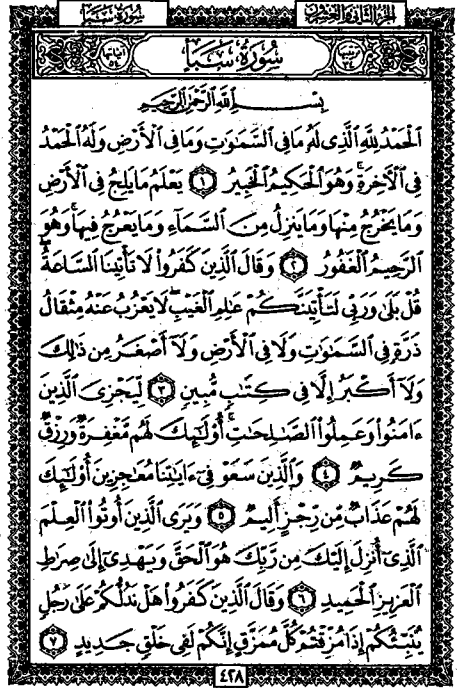 سُورَةُ سَبَإٍ
الجزء الثاني والعشرون
سُورَةُ سَبَإٍ
بِسْمِ ٱللَّهِ ٱلرَّحْمَٰنِ ٱلرَّحِيمِ
ٱلْحَمْدُ لِلَّهِ ٱلَّذِى لَهُۥ مَا فِى ٱلسَّمَٰوَٰتِ وَمَا فِى ٱلْأَرْضِ وَلَهُ ٱلْحَمْدُ
فِى ٱلْءَاخِرَةِ ۚ وَهُوَ ٱلْحَكِيمُ ٱلْخَبِيرُ ١ يَعْلَمُ مَا يَلِجُ فِى ٱلْأَرْضِ
وَمَا يَخْرُجُ مِنْهَا وَمَا يَنزِلُ مِنَ ٱلسَّمَآءِ وَمَا يَعْرُجُ فِيهَا ۚ وَهُوَ
ٱلرَّحِيمُ ٱلْغَفُورُ ٢ وَقَالَ ٱلَّذِينَ كَفَرُوا۟ لَا تَأْتِينَا ٱلسَّاعَةُ ۖ
قُلْ بَلَىٰ وَرَبِّى لَتَأْتِيَنَّكُمْ عَٰلِمِ ٱلْغَيْبِ ۖ لَا يَعْزُبُ عَنْهُ مِثْقَالُ
ذَرَّةٍ فِى ٱلسَّمَٰوَٰتِ وَلَا فِى ٱلْأَرْضِ وَلَآ أَصْغَرُ مِن ذَٰلِكَ
وَلَآ أَكْبَرُ إِلَّا فِى كِتَٰبٍ مُّبِينٍ ٣ لِّيَجْزِىَ ٱلَّذِينَ
ءَامَنُوا۟ وَعَمِلُوا۟ ٱلصَّٰلِحَٰتِ ۚ أُو۟لَٰٓئِكَ لَهُم مَّغْفِرَةٌ وَرِزْقٌ
كَرِيمٌ ٤ وَٱلَّذِينَ سَعَوْ فِىٓ ءَايَٰتِنَا مُعَٰجِزِينَ أُو۟لَٰٓئِكَ
لَهُمْ عَذَابٌ مِّن رِّجْزٍ أَلِيمٌ ٥ وَيَرَى ٱلَّذِينَ أُوتُوا۟ ٱلْعِلْمَ
ٱلَّذِىٓ أُنزِلَ إِلَيْكَ مِن رَّبِّكَ هُوَ ٱلْحَقَّ وَيَهْدِىٓ إِلَىٰ صِرَٰطِ
ٱلْعَزِيزِ ٱلْحَمِيدِ ٦ وَقَالَ ٱلَّذِينَ كَفَرُوا۟ هَلْ نَدُلُّكُمْ عَلَىٰ رَجُلٍ
يُنَبِّئُكُمْ إِذَا مُزِّقْتُمْ كُلَّ مُمَزَّقٍ إِنَّكُمْ لَفِى خَلْقٍ جَدِيدٍ ٧
٤٢٨